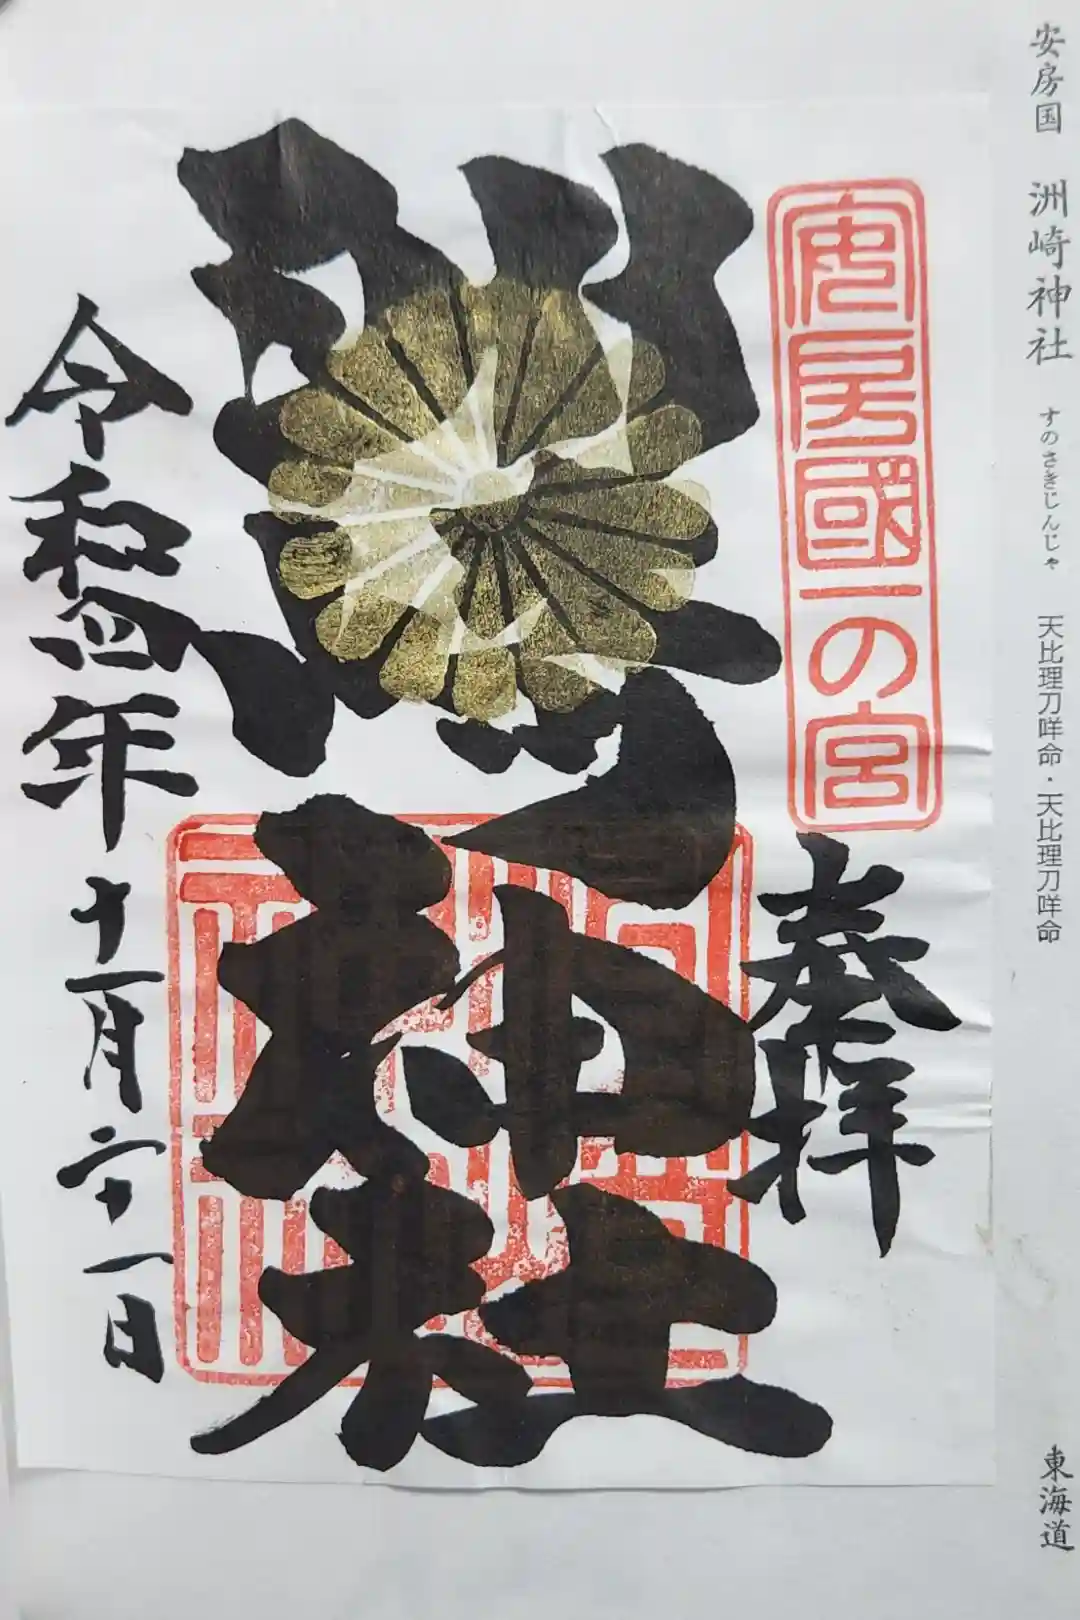 安房国 洲崎神社 すのさきじんじゃ 天比理刀咩命・天比理刀咩命 東海道
安房國一の宮
奉拝
洲崎神社
令和四年十一月二十一日